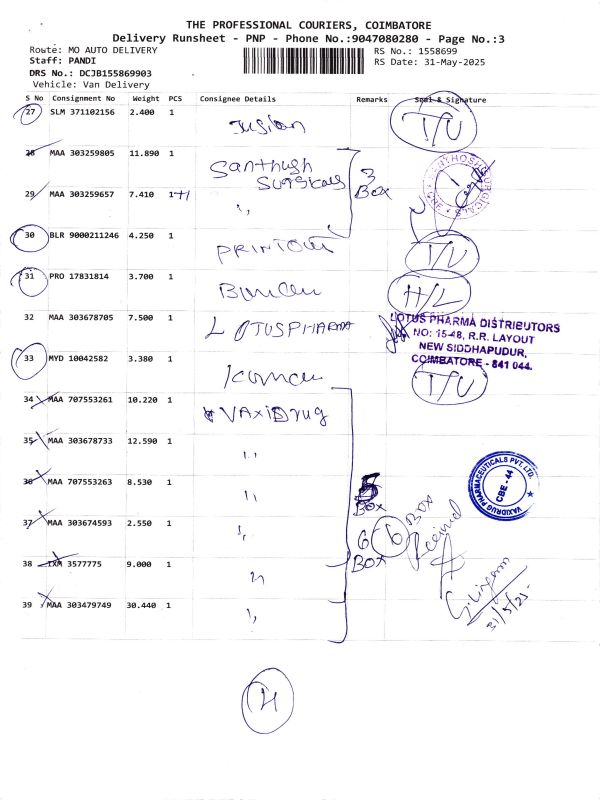 THE PROFESSIONAL COURIERS, COIMBATORE
Delivery Runsheet - PNP - Phone No.:9047080280 - Page No.:3
Route: MO AUTO DELIVERY
RS No.: 1558699
Staff: PANDI
RS Date: 31-May-2025
DRS No.: DCJB155869903
Vehicle: Van Delivery
S No Consignment No Weight PCS Consignee Details Remarks Seal & Signature
27 SLM 371102156 2.400 1 T/U
28 MAA 303259805 11.890 1 Santhush Surgicals
3 Box
29 MAA 303259657 7.410 1 ,,
30 BLR 9000211246 4.250 1 PRINTOUT T/U
31 PRO 17831814 3.700 1 H/L
32 MAA 303678705 7.500 1 LOTUSPHARMA
LOTUS PHARMA DISTRIBUTORS
NO: 15-48, R.R. LAYOUT
NEW SIDDHAPUDUR,
COIMBATORE - 641 044.
33 MYD 10042582 3.380 1 T/U
34 MAA 707553261 10.220 1 VAXiDrug
35 MAA 303678733 12.590 1 ,,
36 MAA 707553263 8.530 1 ,,
5 BOX
VAXIDRUG PHARMACEUTICALS PVT. LTD.
CBE - 44
37 MAA 303674593 2.550 1 ,,
6 BOX
6 BOX
38 IXM 3577775 9.000 1 ,,
39 MAA 303479749 30.440 1 ,,
31/5/25
4